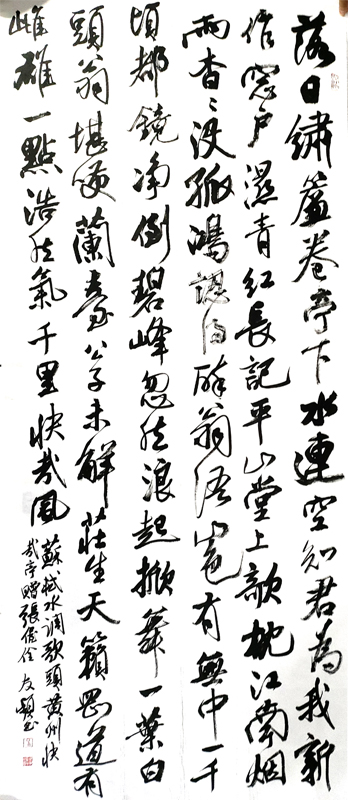 落日繡簾卷亭下水連空知君為我新
作窓戶濕青紅長記平山堂上欹枕江南烟
雨杳〻沒孤鴻認得醉翁語山色有無中一千
頃都鏡净倒碧峰忽然浪起掀舞一葉白
頭翁堪笑蘭臺公子未解莊生天籟罡道有
雌雄一點浩然氣千里快哉風
蘇軾水調歌頭黃州快
哉亭贈張偓佺 友 書